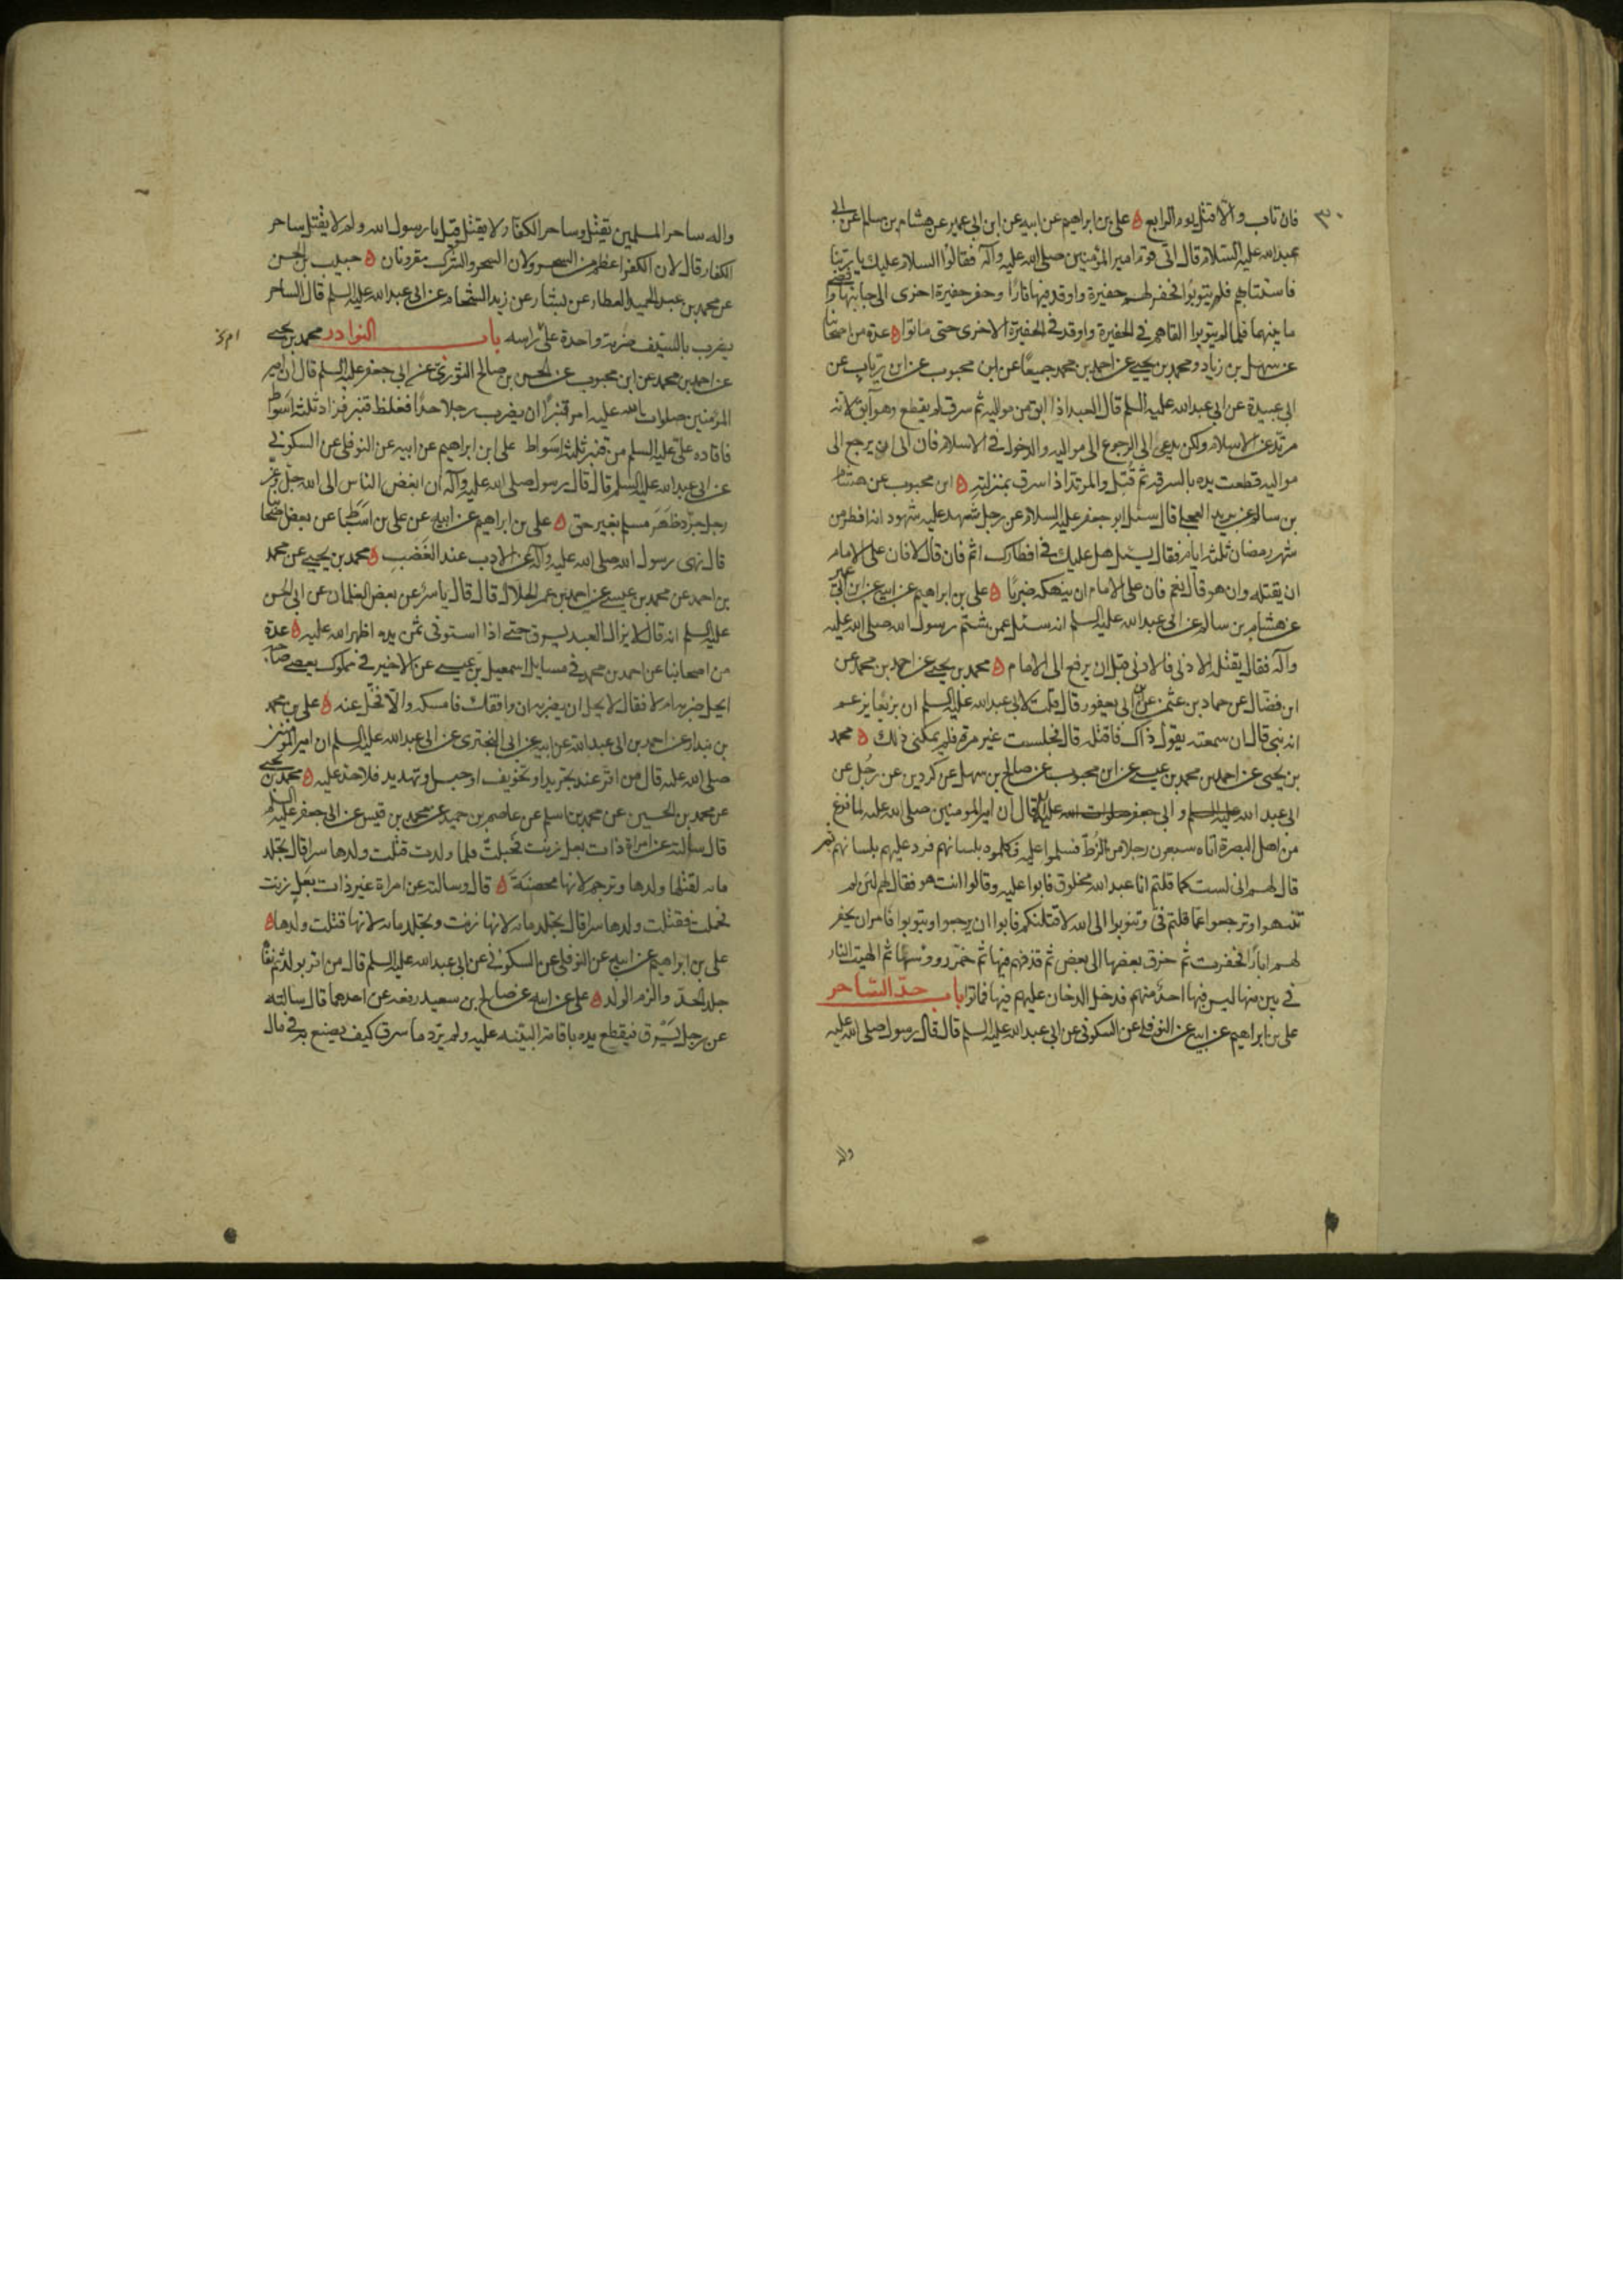 فان تاب والا قتل يوم الرابع ه علي بن ابراهيم عن ابيه عن ابن ابي عمير عن هشام بن سالم عن ابي
عبد الله عليه السلام قال اتى قوم امير المؤمنين صلى الله عليه وآله فقالوا السلام عليك يا ربنا
فاستتابهم فلم يتوبوا فحفر لهم حفيرة واوقد فيها نارا وحفر حفيرة اخرى الى جانبها وافضى
ما بينهما فلما لم يتوبوا القاهم في الحفيرة واوقد في الحفيرة الاخرى حتى ماتوا ه عدة من اصحابنا
عن سهل بن زياد ومحمد بن يحيى عن احمد بن محمد جميعا عن ابن محبوب عن ابن رياب عن
ابي عبيدة عن ابي عبد الله عليه السلم قال العبد اذا ابق من مواليه ثم سرق لم يقطع وهو آبق لانه
مرتد عن الاسلام ولكن يدعى الى الرجوع الى مواليه والدخول في الاسلام فان ابى ان يرجع الى
مواليه قطعت يده بالسرقه ثم قتل والمرتد اذا سرق بمنزلته ه ابن محبوب عن هشام
بن سالم عن بريد العجلي قال سئل ابو جعفر عليه السلام عن رجل شهد عليه شهود انه افطر من
شهر رمضان ثلثة ايام فقال يسئل هل عليك في افطارك اثم فان قال لا فان على الامام
ان يقتله وان هو قال نعم فان على الامام ان ينهكه ضربا ه علي بن ابراهيم عن ابيه عن ابن ابي عمير
عن هشام بن سالم عن ابي عبد الله عليه السلم انه سئل عمن شتم رسول الله صلى الله عليه
وآله فقال يقتله الادنى فالادنى قبل ان يرفع الى الامام ه محمد بن يحيى عن احمد بن محمد عن
ابن فضال عن حماد بن عثمن عن ابن ابي يعفور قال قلت لابي عبد الله عليه السلم ان بزيعا يزعم
انه نبي قال ان سمعته يقول ذاك فاقتله قال فجلست غير مرة فلم يمكني ذلك ه محمد
بن يحيى عن احمد بن محمد بن عيسى عن ابن محبوب عن صالح بن سهل عن كردين عن رجل عن
ابي عبد الله عليه السلم وابي جعفر صلوات الله عليهما قال ان امير المومنين صلى الله عليه لما فرغ
من اهل البصرة اتاه سبعون رجلا من الزط فسلموا عليه وكلموه بلسانهم فرد عليهم بلسانهم ثم
قال لهم اني لست كما قلتم انا عبد الله مخلوق فابوا عليه وقالوا انت هو فقال لهم لئن لم
تنتهوا وترجعوا عما قلتم في وتتوبوا الى الله لاقتلنكم فابوا ان يرجعوا ويتوبوا فامر ان يحفر
لهم ابار فحفرت ثم خرق بعضها الى بعض ثم قذفهم فيها ثم خمر روؤسها ثم الهبت النار
في بئر منها ليس فيها احد منهم فدخل الدخان عليهم فيها فماتوا باب حد الساحر
علي بن ابراهيم عن ابيه عن النوفلي عن السكوني عن ابي عبد الله عليه السلم قال قال رسول صلى الله عليه
واله
واله ساحر المسلمين يقتل وساحر الكفار لا يقتل قيل يا رسول الله ولم لا يقتل ساحر
الكفار قال لان الكفر اعظم من السحر ولان السحر والشرك مقرونان ه حبيب بن الحسن
عن محمد بن عبد الحميد العطار عن بشار عن زيد الشحام عن ابي عبد الله عليه السلم قال الساحر
يضرب بالسيف ضربة واحدة على راسه باب النوادر محمد بن يحيى
عن احمد بن محمد عن ابن محبوب عن الحسن بن صالح الثوري عن ابي جعفر عليه السلم قال ان امير
المؤمنين صلوات الله عليه امر قنبرا ان يضرب رجلا حدا فغلظ قنبر فزاد ثلثة اسواط
فاقاده علي عليه السلم من قنبر ثلثة اسواط علي ابن ابراهيم عن ابيه عن النوفلي عن السكوني
عن ابي عبد الله عليه السلم قال قال رسول صلى الله عليه وآله ان ابغض الناس الى الله جل وعز
رجل جرد ظهر مسلم بغير حق ه علي بن ابراهيم عن ابيه عن علي بن اسباط عن بعض اصحابنا
قال نهى رسول الله صلى الله عليه وآله عن الادب عند الغضب ه محمد بن يحيى عن محمد
بن احمد عن محمد بن عيسى عن احمد بن عمر الحلال قال قال ياسر عن بعض الغلمان عن ابي الحسن
عليه السلم انه قال لا يزال العبد يسرق حتى اذا استوفى ثمن يده اظهر الله عليه ه عدة
من اصحابنا عن احمد بن محمد في مسايل اسمعيل بن عيسى عن الاخير في مملوك يعصي صاحبه
ايحل ضربه ام لا فقال لا يحل ان يضربه ان وافقك فامسكه والا فخل عنه ه علي بن محمد
بن بندار عن احمد بن ابي عبد الله عن ابيه عن ابي البختري عن ابي عبد الله عليه السلم ان امير المؤمنين
صلى الله عليه قال من اقر عند تجريد او تخويف او حبس او تهديد فلا حد عليه ه محمد بن يحيى
عن محمد بن الحسين عن محمد بن اسلم عن عاصم بن حميد عن محمد بن قيس عن ابي جعفر عليه السلم
قال سألته عن امراة ذات بعل زنت فحبلت فلما ولدت قتلت ولدها سرا قال تجلد
مايه لقتلها ولدها وترجم لانها محصنة ه قال وسالته عن امراة غير ذات بعل زنت
فحملت فقتلت ولدها سرا قال تجلد مايه لانها زنت وتجلد مايه لانها قتلت ولدها ه
علي بن ابراهيم عن ابيه عن النوفلي عن السكوني عن ابي عبد الله عليه السلم قال من اقر بولد ثم نفاه
جلد الحد والزم الولد ه علي عن ابيه عن صالح بن سعيد رفعه عن احدهما قال سالته
عن رجل يسرق فيقطع يده باقامة البينه عليه ولم يرد ما سرق كيف يصنع به في مال